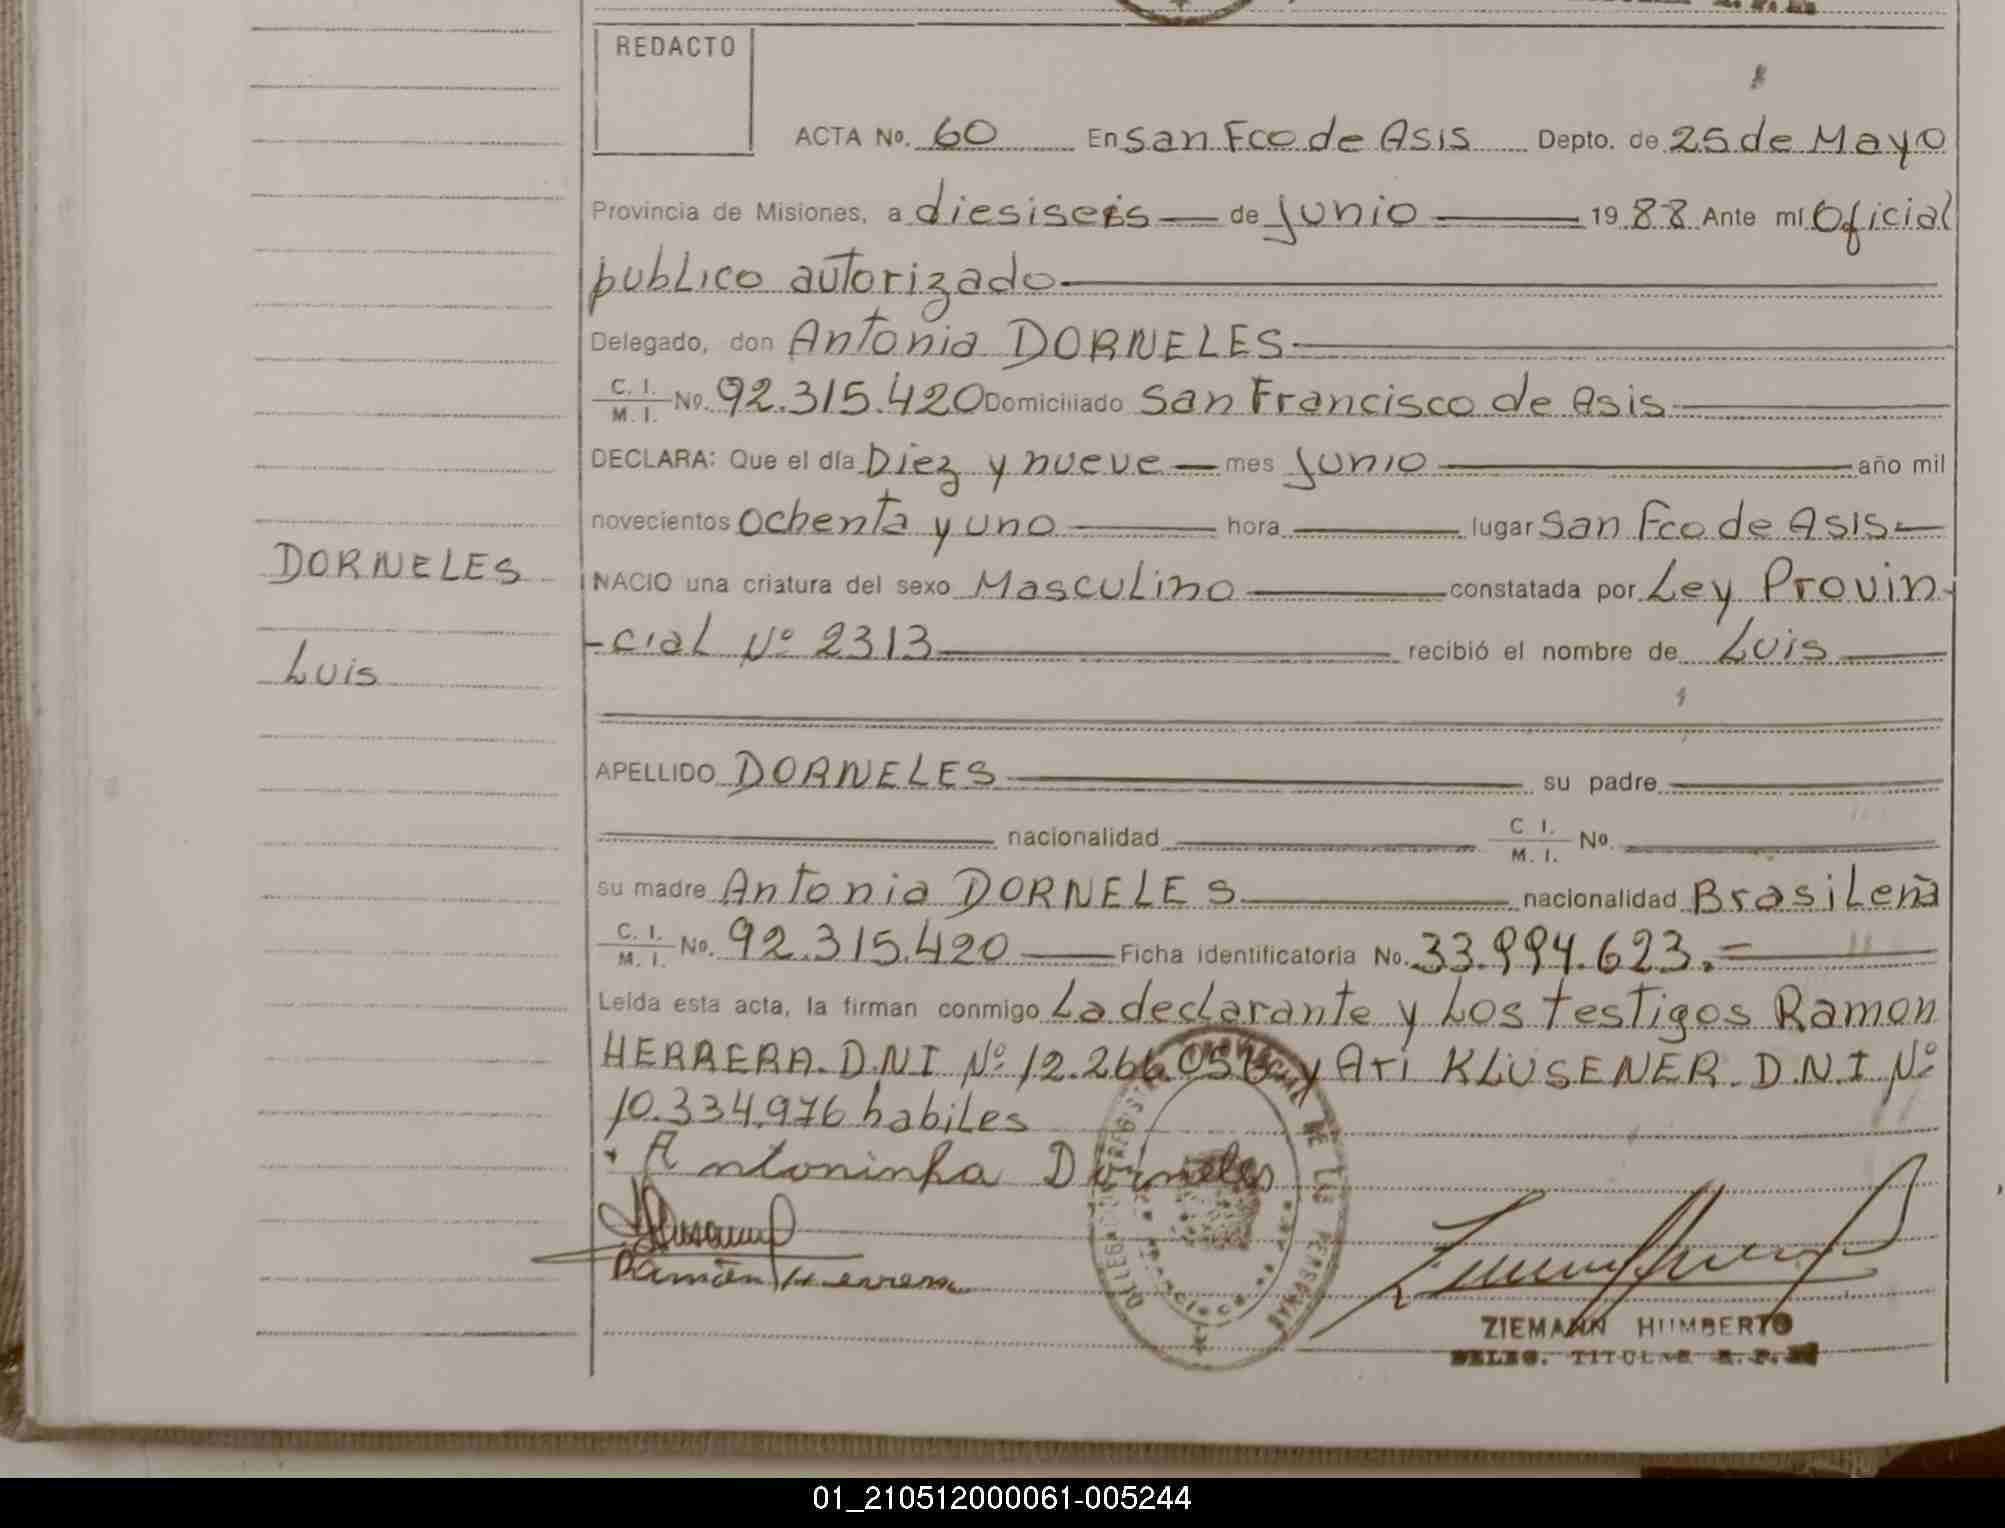 REDACTO
ACTA No. 60 En San Fco de Asis Depto. de 25 de Mayo
Provincia de Misiones, a diesiseis de Junio 1988 Ante mí Oficial
publico autorizado
Delegado, don Antonia DORNELES
C. I. / M. I. No. 92.315.420 Domiciliado San Francisco de Asis
DECLARA: Que el día Diez y nueve mes Junio año mil
novecientos ochenta y uno hora lugar San Fco de Asis
DORNELES
NACIO una criatura del sexo Masculino constatada por Ley Provin-
-cial Nº 2313 recibió el nombre de Luis
Luis
APELLIDO DORNELES su padre
nacionalidad C I. / M. I. No.
su madre Antonia DORNELES nacionalidad Brasileña
C. I. / M. I. No. 92.315.420 Ficha identificatoria No. 33.994.623.=
Leída esta acta, la firman conmigo La declarante y Los testigos Ramon
HERRERA. D.N.I Nº 12.266. y Ari KLUSENER. D.N.I Nº
10.334.976 habiles
Antoninha Dorneles
Ramón Herrera
DE LAS PERSONAS
ZIEMANN HUMBERTO
DELEG. TITULAR R. P.
01_210512000061-005244